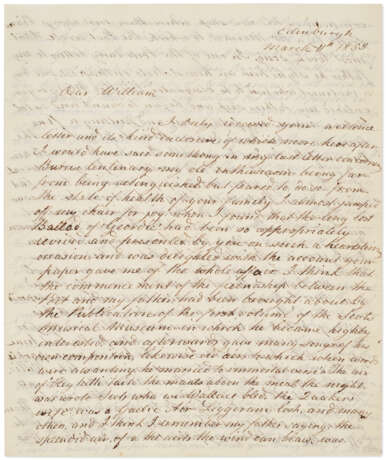 Edinburgh
March 11th 1859
Dear William
I duly received your welcome
letter and its kind enclosure of which more hereafter
I would have said something in my last letter concerning
Burns Centenary my old enthusiasm being far
from being extinguished but feared to do so from
the state of health of your family I almost jumped
of my chair for joy when I found that the long lost
Ballad of Geordie had been so appropriately
revived and presented by you on such a heartstirring
occasion and was delighted with the account your
paper gave me of the whole affair I think that
the commencement of the friendship between the
Poet and my father had been brought about by
the Publication of the first volume of the Scots
Musical Museum in which he became highly
interested and afterwards gave many songs of his
own composition, likewise old airs to which when words
were awanting he married to immortal verse The air
of Hey tutti taitie the maets aboon the meal the night,
was wrote Scots wha hae Wallace bled, the Quakers
wife was a Gaelic Air Leiggeram cosh, and many
others, and I think I remember my father saying the
splendid air of a the airts the wind can blaw, was